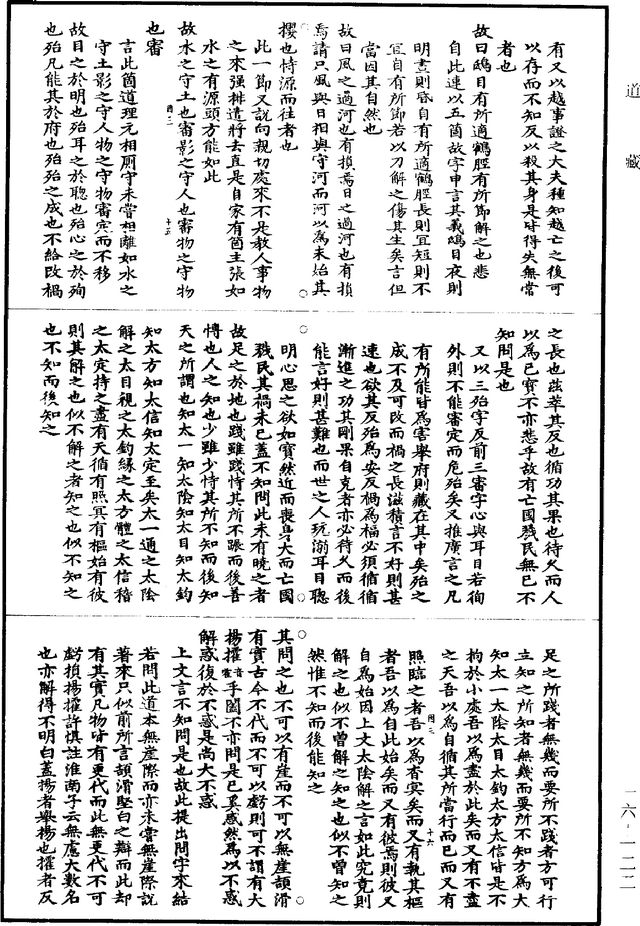 道藏
有又以越事證之大夫種知越亡之後可
以存而不知反以殺其身是皆得失無常
者也
故曰鴟目有所適鶴脛有所節解之也悲
自此連以五箇故字申言其義鴟目夜則
明晝則昏自有所適鶴脛長則宜短則不
宜自有所節若以刀解之傷其生矣言但
當因其自然也
故曰風之過河也有損焉日之過河也有損
焉請只風與日相與守河而河以為未始其
攖也恃源而往者也
此一節又說向親切處來不是教人事物
之來强排遣將去直是自家有箇主張如
水之有源頭方能如此
故水之守土也審影之守人也審物之守物
也審
言此箇道理元相厠守未嘗相離如水之
守土影之守人物之守物審定而不移
故目之於明也殆耳之於聰也殆心之於殉
也殆凡能其於府也殆殆之成也不給改禍
之長也茲萃其反也循功其果也待久而人
以為己寶不亦悲乎故有亡國戮民無已不
知問是也
又以三殆字反前三審字心與耳目若徇
外則不能審定而危殆矣又推廣言之凡
有所能皆為害舉府則藏在其中矣殆之
成不及可改而禍之長滋積言不好則甚
速也欲其反殆為安反禍為福必須循循
漸進之功其剛果自克者亦必待久而後
能言好則甚難也而世之人玩溺耳目聰
明心思之欲如寶然近而喪身大而亡國
戮民其禍未已蓋不知問此未有曉之者
故足之於地也踐雖踐恃其所不蹍而後善
博也人之知也少雖少恃其所不知而後知
天之所謂也知太一知太陰知太目知太鈞
知太方知太信知太定至矣太一通之太陰
解之太目視之太鈞緣之太方體之太信稽
之太定持之盡有天循有照冥有樞始有彼
則其解之也似不解之者知之也似不知之
也不知而後知之
足之所踐者無幾而要所不踐者方可行
立知之所知者無幾而要所不知方為大
知太一太陰太目太鈞太方太信皆是不
拘於小處吾以為盡於此矣而又有不盡
之天吾以為自循其所當行而已而又有
照臨之者吾以為杳冥矣而又有執其樞
者吾以為自此始矣而又有彼焉則彼又
自為始因上文太陰解之言如此究竟則
解之也似不曾解之知之也似不曾知之
然惟不知而後能知之
其問之也不可以有崖而不可以無崖頡滑
有實古今不代而不可以虧則可不謂有大
揚搉乎闔不亦問是已奚惑然為以不惑
解惑復於不惑是尚大不惑
上文言不知問是也故此提出問字來結
若問此道本無崖際而亦未嘗無崖際說
著來只似前所言頡滑堅白之辯而此却
有其實凡物皆有更代而此無更代不可
虧損揚搉許慎註淮南子云無慮大數名
也亦解得不明白蓋揚者舉揚也搉者反
一六·一二二